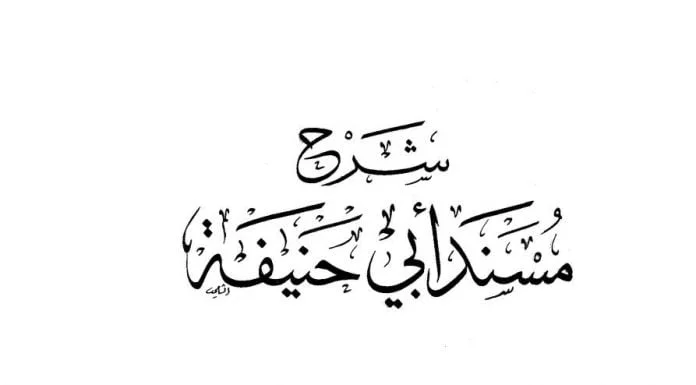 شَرْح
مُسْنَد أَبي حَنيفَة